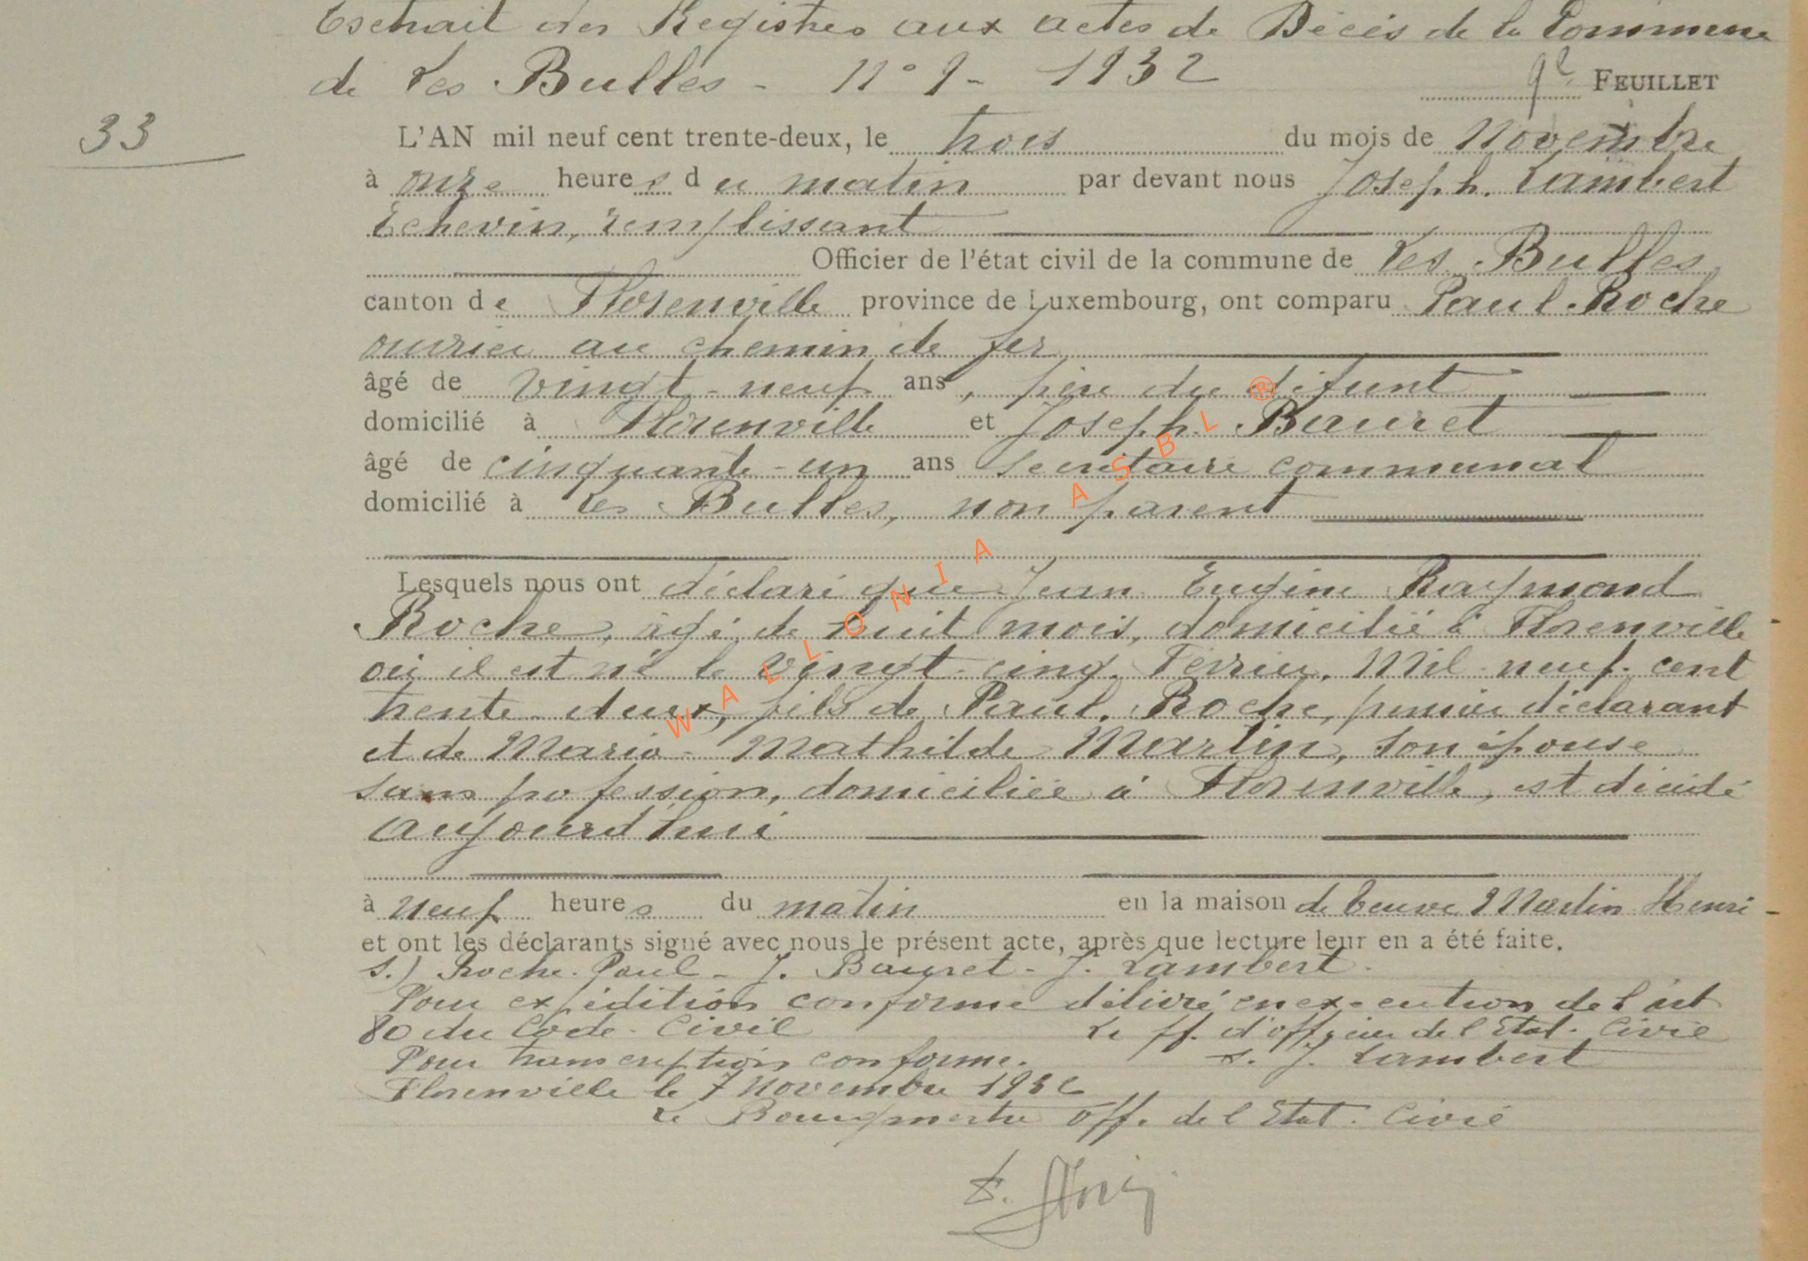 Extrait des Registres aux actes de Décès de la Commune
de Les Bulles - N° 9 - 1932
9e FEUILLET
33
L'AN mil neuf cent trente-deux, le trois du mois de Novembre
à onze heures du matin par devant nous Joseph Lambert
Echevin, remplissant
Officier de l'état civil de la commune de Les Bulles
canton de Florenville province de Luxembourg, ont comparu Paul Roche
ouvrier au chemin de fer
âgé de vingt-neuf ans, père du défunt
domicilié à Florenville et Joseph Bauret
âgé de cinquante-un ans secrétaire communal
domicilié à Les Bulles, non parent
Lesquels nous ont déclaré que Jean Eugène Raymond
Roche, âgé de huit mois, domicilié à Florenville
où il est né le vingt-cinq Février, Mil neuf cent
trente-deux, fils de Paul Roche, premier déclarant
et de Marie-Mathilde Martin, son épouse
sans profession, domiciliée à Florenville, est décédé
aujourd'hui
à neuf heures du matin en la maison de veuve Martin Henri -
et ont les déclarants signé avec nous le présent acte, après que lecture leur en a été faite.
s.) Roche Paul - J. Bauret - J. Lambert.
Pour expédition conforme délivré en exécution de l'art
80 du Code Civil Le ff. d'officier de l'Etat Civil
Pour transcription conforme. s. J. Lambert
Florenville le 7 Novembre 1932
Le Bourgmestre off. de l'Etat Civil
WALLONIA ASBL ®